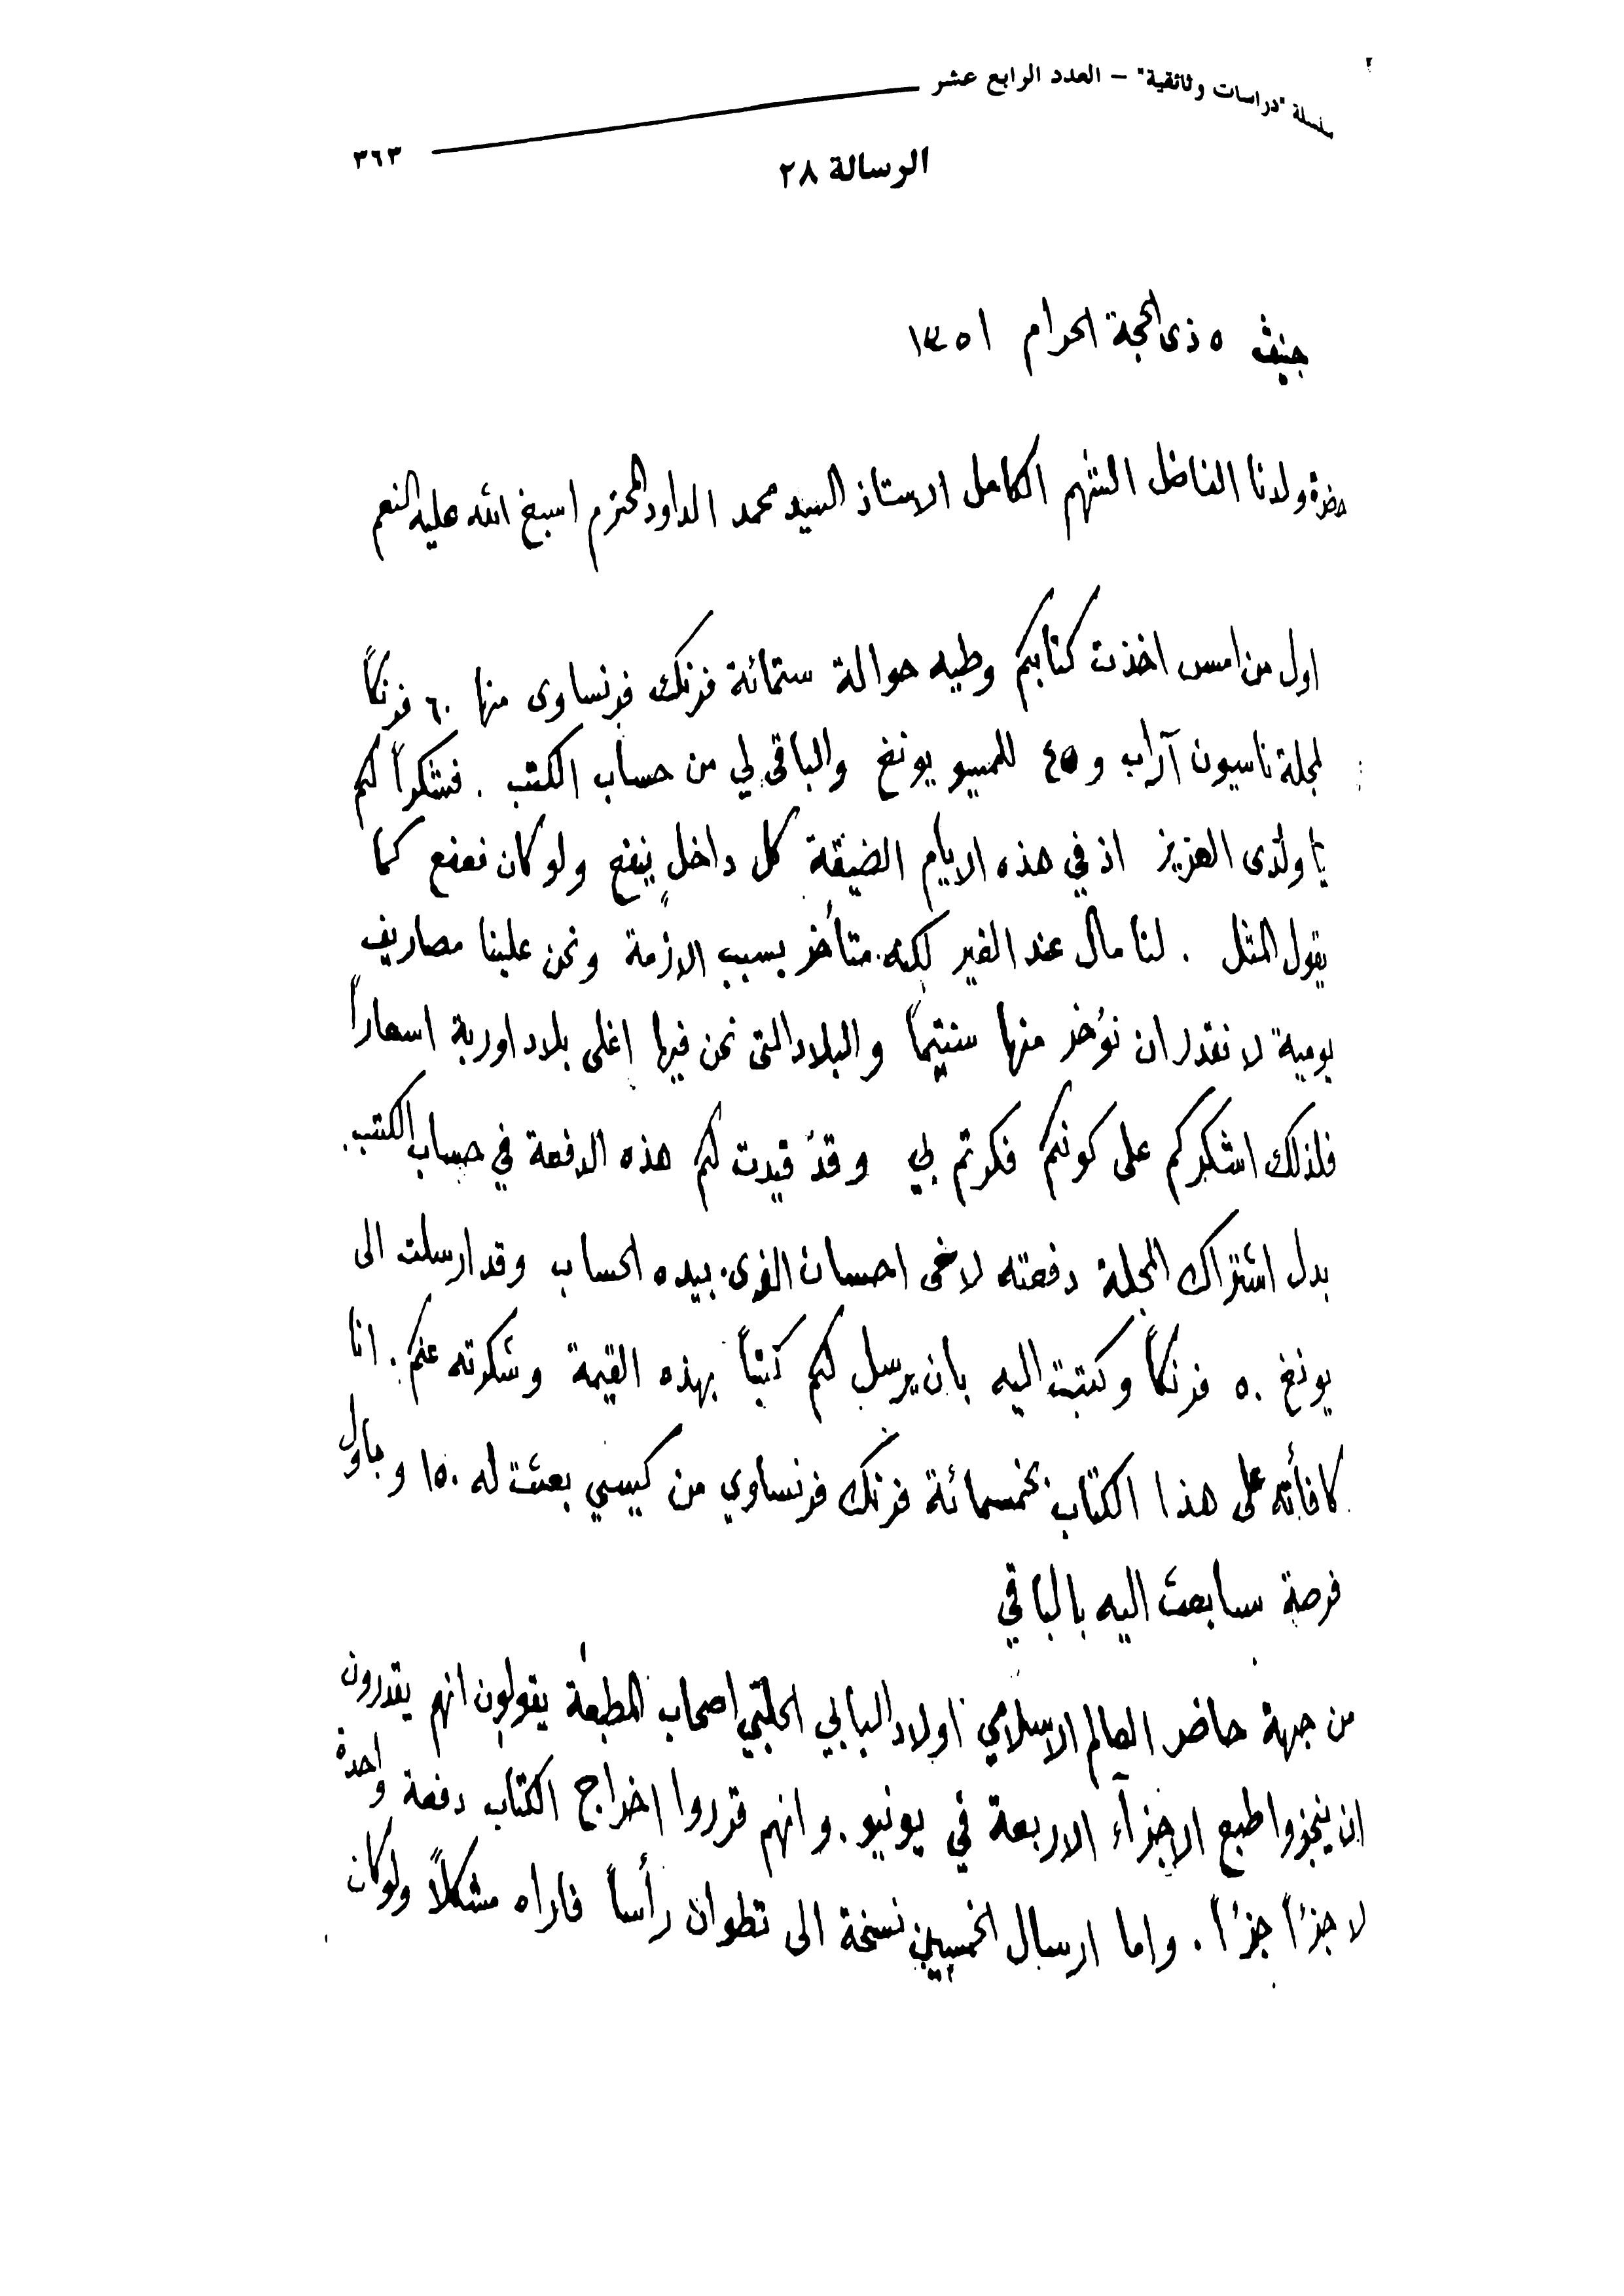 سلسلة "دراسات وثائقية" – العدد الرابع عشر
٣٦٣
الرسالة ٢٨
جنيف ٥ ذى الحجة الحرام ١٣٥١
حضرة ولدنا الفاضل الشهم الكامل الاستاذ السيد محمد الداود المحترم اسبغ الله عليه النعم
اول من امس اخذت كتابكم وطيه حوالة ستمائة فرنك فرنساوى منها ٦٠ فرنكاً
لمجلة ناسيون آراب و ٤٥ للمسيو يونغ والباقى لي من حساب الكتب . فشكراً لكم
يا ولدى العزيز اذ في هذه الايام الضيقة كل داخلٍ ينفع ولو كان نعنع كما
يقول المثل . لنا مال عند الغير لكنه متأخر بسبب الازمة ونحن علينا مصاريف
يومية لا نقدر ان نؤخر منها سنتيماً والبلاد التى نحن فيها اغلى بلاد اوربة اسعاراً
فلذلك اشكركم على كونكم فكرتم بي وقد قيدت لكم هذه الدفعة في حساب الكتب.
بدل اشتراك المجلة دفعته لاخى احسان الذى بيده الحساب وقد ارسلت الى
يونغ ٥٠ فرنكاً وكتبت اليه بان يرسل لكم كتباً بهذه القيمة وشكرته عنكم. انا
كافأته على هذا الكتاب بخمسمائة فرنك فرنساوي من كيسي بعثت له ١٥٠ وباول
فرصة سابعث اليه بالباقي
من جهة حاضر العالم الاسلامي اولاد البابي الحلبي اصحاب المطبعة يقولون انهم يقدرون
ان ينجزوا طبع الاجزآء الاربعة في يونيو. وانهم قرروا اخراج الكتاب دفعة واحدة
لا جزءاً جزءاً. واما ارسال الخمسين نسخة الى تطوان رأساً فاراه مشكلاً ولو كان